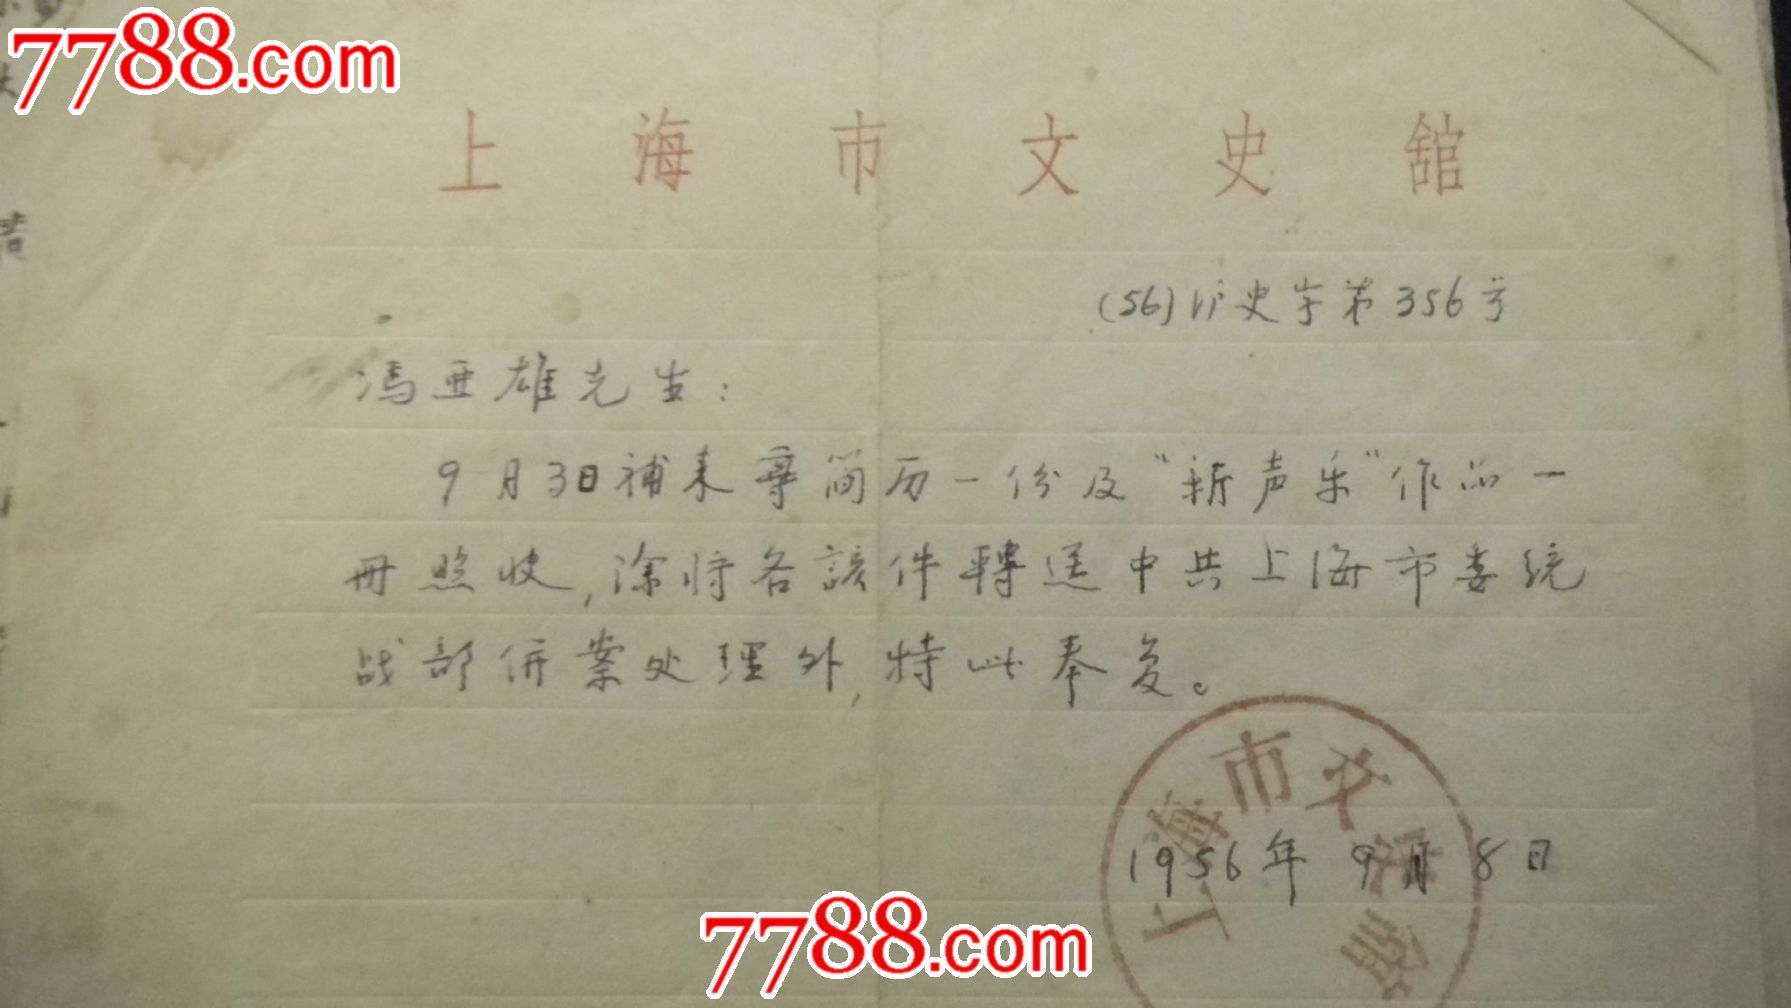 7788.com
上海市文史舘
(56)沪史字第356号
冯亚雄先生：
9月3日补来尊简历一份及“新声乐”作品一
册照收，除将各該件轉送中共上海市委統
战部併案处理外，特此奉复。
上海市文史舘
1956年9月8日
7788.com